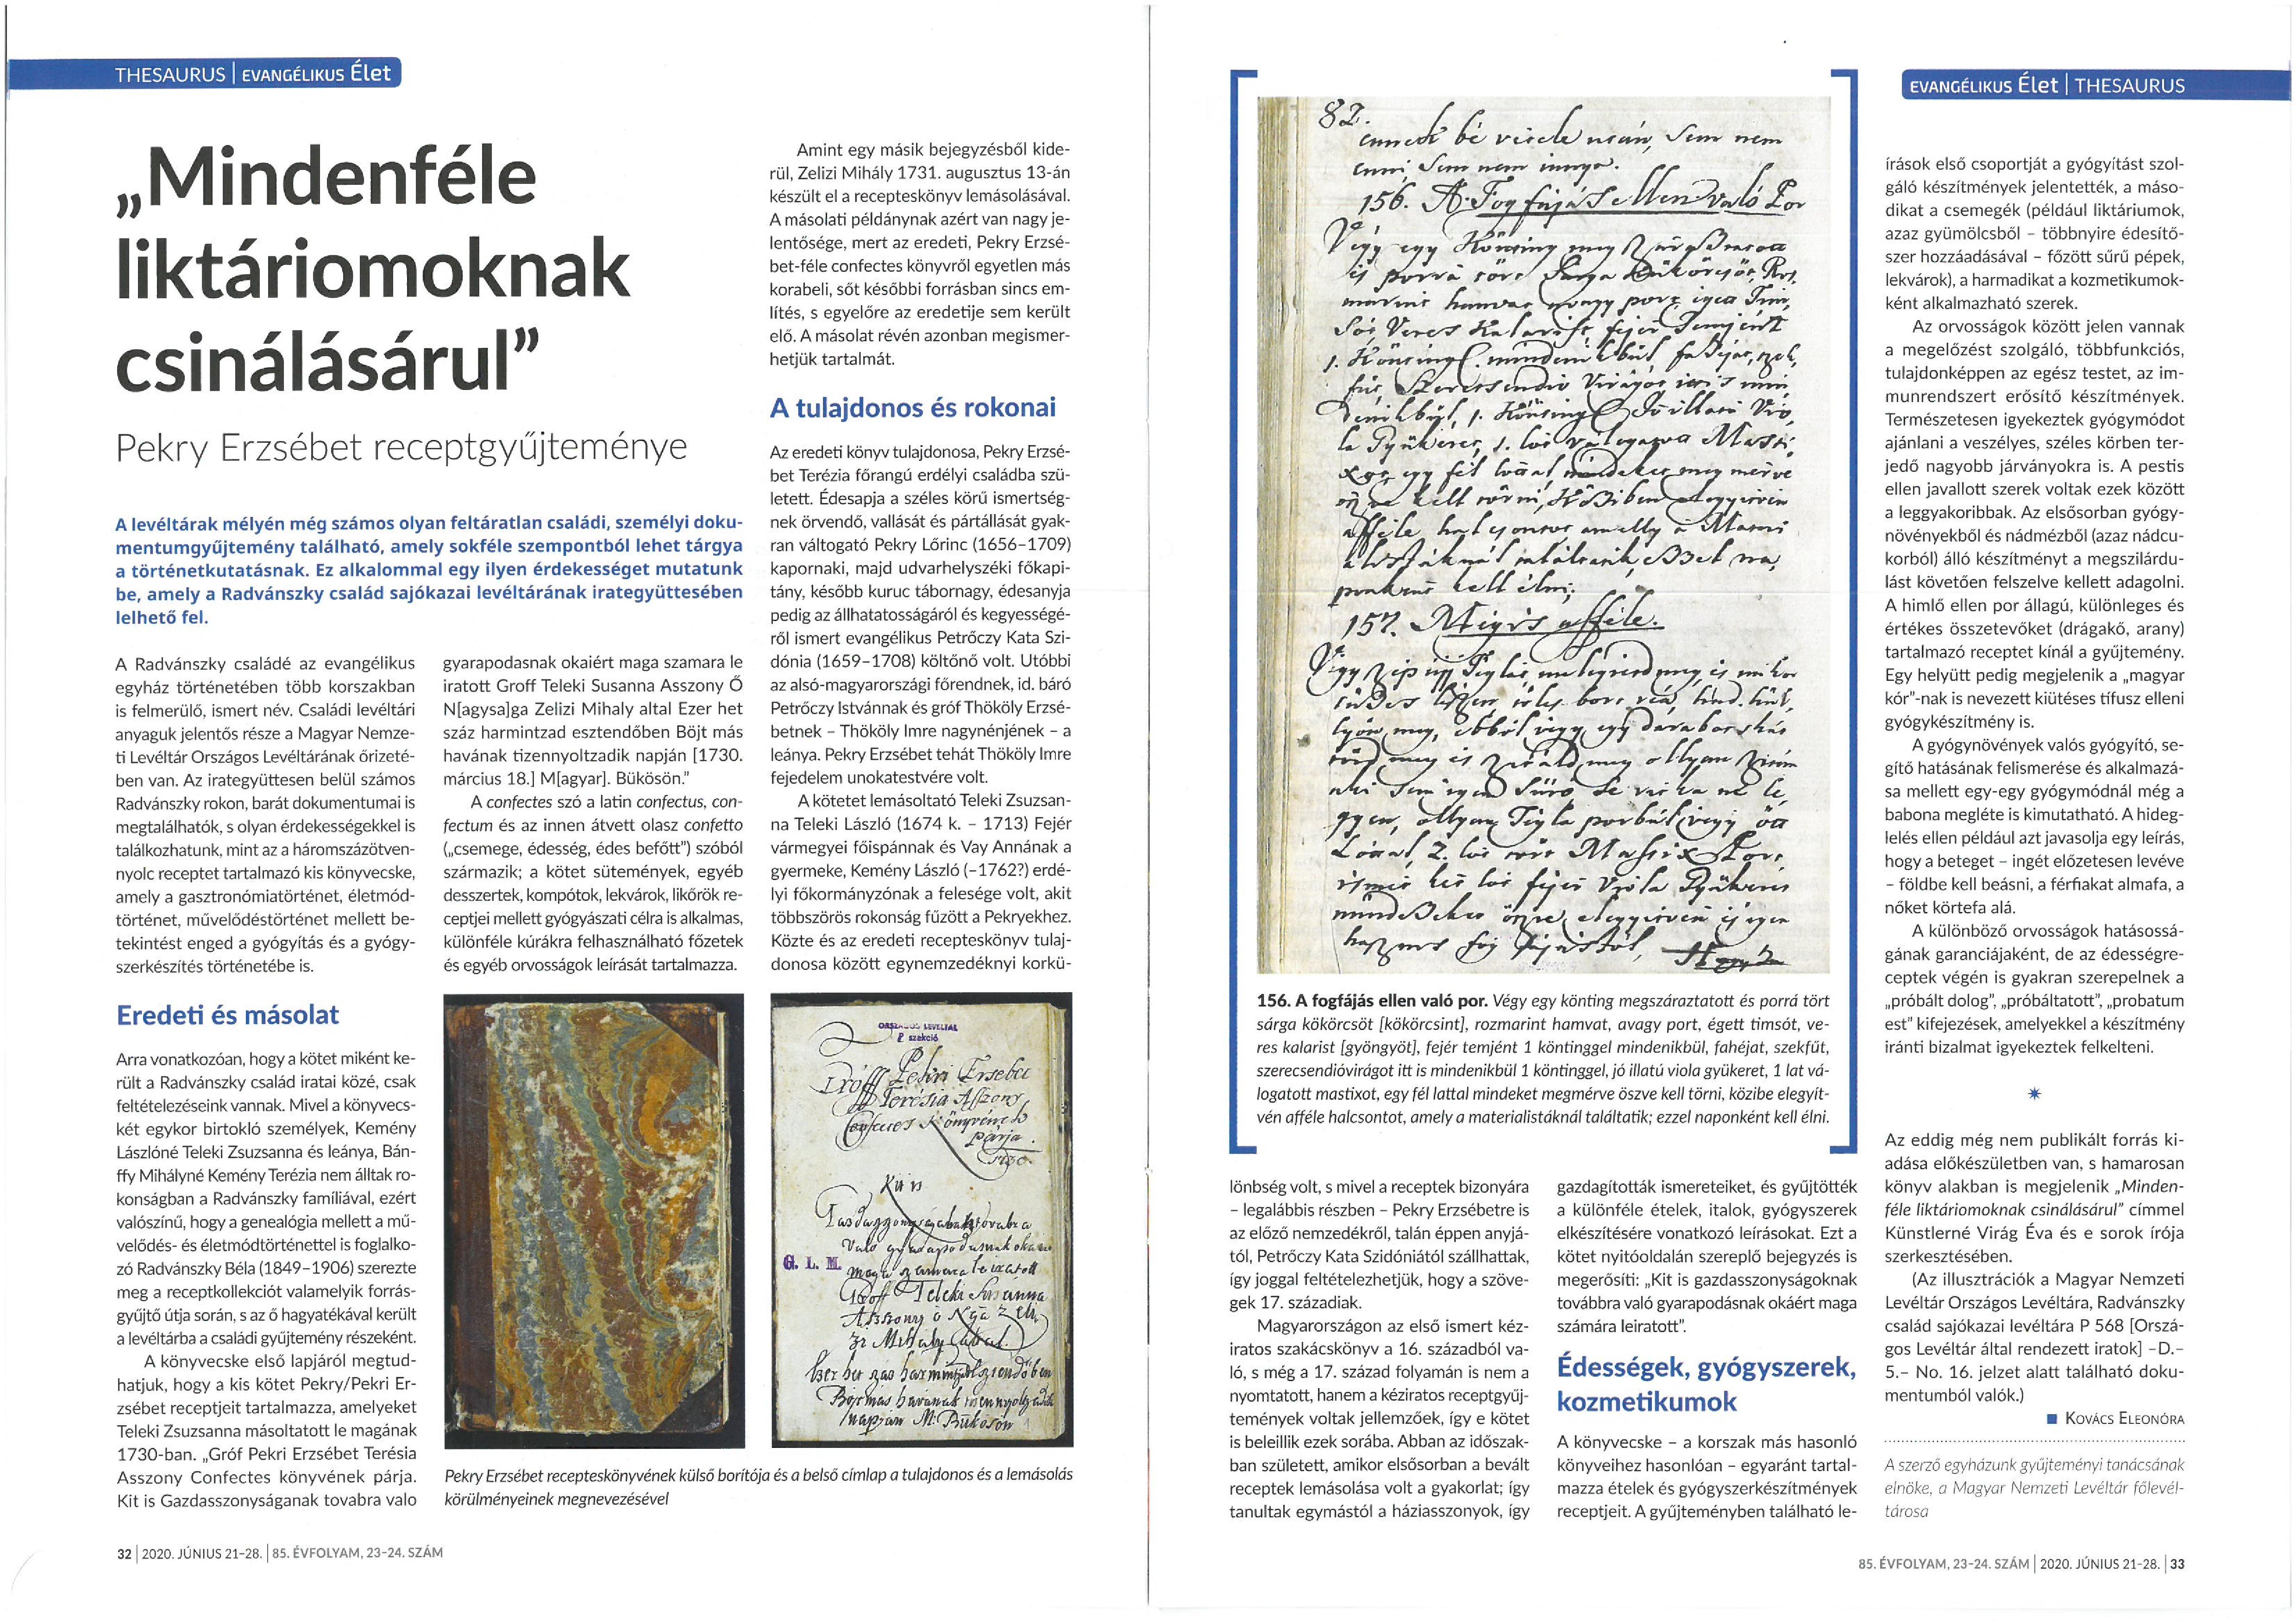 THESAURUS | EVANGÉLIKUS Élet
„Mindenféle
liktáriomoknak
csinálásárul”
Pekry Erzsébet receptgyűjteménye
A levéltárak mélyén még számos olyan feltáratlan családi, személyi doku-
mentumgyűjtemény található, amely sokféle szempontból lehet tárgya
a történetkutatásnak. Ez alkalommal egy ilyen érdekességet mutatunk
be, amely a Radvánszky család sajókazai levéltárának irategyüttesében
lelhető fel.
A Radvánszky családé az evangélikus
egyház történetében több korszakban
is felmerülő, ismert név. Családi levéltári
anyaguk jelentős része a Magyar Nemze-
ti Levéltár Országos Levéltárának őrizeté-
ben van. Az irategyüttesen belül számos
Radvánszky rokon, barát dokumentumai is
megtalálhatók, s olyan érdekességekkel is
találkozhatunk, mint az a háromszázötven-
nyolc receptet tartalmazó kis könyvecske,
amely a gasztronómiatörténet, életmód-
történet, művelődéstörténet mellett be-
tekintést enged a gyógyítás és a gyógy-
szerkészítés történetébe is.
Eredeti és másolat
Arra vonatkozóan, hogy a kötet miként ke-
rült a Radvánszky család iratai közé, csak
feltételezéseink vannak. Mivel a könyvecs-
két egykor birtokló személyek, Kemény
Lászlóné Teleki Zsuzsanna és leánya, Bán-
ffy Mihályné Kemény Terézia nem álltak ro-
konságban a Radvánszky famíliával, ezért
valószínű, hogy a genealógia mellett a mű-
velődés- és életmódtörténettel is foglalko-
zó Radvánszky Béla (1849–1906) szerezte
meg a receptkollekciót valamelyik forrás-
gyűjtő útja során, s az ő hagyatékával került
a levéltárba a családi gyűjtemény részeként.
A könyvecske első lapjáról megtud-
hatjuk, hogy a kis kötet Pekry/Pekri Er-
zsébet receptjeit tartalmazza, amelyeket
Teleki Zsuzsanna másoltatott le magának
1730-ban. „Gróf Pekri Erzsébet Terésia
Asszony Confectes könyvének párja.
Kit is Gazdasszonyságanak tovabra valo
gyarapodasnak okaiért maga szamara le
iratott Groff Teleki Susanna Asszony Ő
N[agysa]ga Zelizi Mihaly altal Ezer het
száz harmintzad esztendőben Böjt más
havának tizennyoltzadik napján [1730.
március 18.] M[agyar]. Bükösön.”
A confectes szó a latin confectus, con-
fectum és az innen átvett olasz confetto
(„csemege, édesség, édes befőtt”) szóból
származik; a kötet sütemények, egyéb
desszertek, kompótok, lekvárok, likőrök re-
ceptjei mellett gyógyászati célra is alkalmas,
különféle kúrákra felhasználható főzetek
és egyéb orvosságok leírását tartalmazza.
Amint egy másik bejegyzésből kide-
rül, Zelizi Mihály 1731. augusztus 13-án
készült el a recepteskönyv lemásolásával.
A másolati példánynak azért van nagy je-
lentősége, mert az eredeti, Pekry Erzsé-
bet-féle confectes könyvről egyetlen más
korabeli, sőt későbbi forrásban sincs em-
lítés, s egyelőre az eredetije sem került
elő. A másolat révén azonban megismer-
hetjük tartalmát.
A tulajdonos és rokonai
Az eredeti könyv tulajdonosa, Pekry Erzsé-
bet Terézia főrangú erdélyi családba szü-
letett. Édesapja a széles körű ismertség-
nek örvendő, vallását és pártállását gyak-
ran váltogató Pekry Lőrinc (1656–1709)
kapornaki, majd udvarhelyszéki főkapi-
tány, később kuruc tábornagy, édesanyja
pedig az állhatatosságáról és kegyességé-
ről ismert evangélikus Petrőczy Kata Szi-
dónia (1659–1708) költőnő volt. Utóbbi
az alsó-magyarországi főrendnek, id. báró
Petrőczy Istvánnak és gróf Thököly Erzsé-
betnek – Thököly Imre nagynénjének – a
leánya. Pekry Erzsébet tehát Thököly Imre
fejedelem unokatestvére volt.
A kötetet lemásoltató Teleki Zsuzsan-
na Teleki László (1674 k. – 1713) Fejér
vármegyei főispánnak és Vay Annának a
gyermeke, Kemény László (–1762?) erdé-
lyi főkormányzónak a felesége volt, akit
többszörös rokonság fűzött a Pekryekhez.
Közte és az eredeti recepteskönyv tulaj-
donosa között egynemzedéknyi korkü-
ORSZÁGOS LEVÉLTÁR
P szekció
Gróff Pekri Ersebet
Terésia Asszony
Confectes Könyvének
párja
1730.
Kit is
G. L. M.
Groff Teleki Susanna
Asszony ő Nga Zeli
zi Mihaly altal
napján M. Bükösön
Pekry Erzsébet recepteskönyvének külső borítója és a belső címlap a tulajdonos és a lemásolás
körülményeinek megnevezésével
32 | 2020. JÚNIUS 21–28. | 85. ÉVFOLYAM, 23–24. SZÁM
EVANGÉLIKUS Élet | THESAURUS
82.
156. A Fog fájás ellen való Por
157. Mégis afféle.
156. A fogfájás ellen való por. Végy egy könting megszáraztatott és porrá tört
sárga kökörcsöt [kökörcsint], rozmarint hamvat, avagy port, égett timsót, ve-
res kalarist [gyöngyöt], fejér temjént 1 köntinggel mindenikbül, fahéjat, szekfüt,
szerecsendióvirágot itt is mindenikbül 1 köntinggel, jó illatú viola gyükeret, 1 lat vá-
logatott mastixot, egy fél lattal mindeket megmérve öszve kell törni, közibe elegyít-
vén afféle halcsontot, amely a materialistáknál találtatik; ezzel naponként kell élni.
lönbség volt, s mivel a receptek bizonyára
– legalábbis részben – Pekry Erzsébetre is
az előző nemzedékről, talán éppen anyjá-
tól, Petrőczy Kata Szidóniától szállhattak,
így joggal feltételezhetjük, hogy a szöve-
gek 17. századiak.
Magyarországon az első ismert kéz-
iratos szakácskönyv a 16. századból va-
ló, s még a 17. század folyamán is nem a
nyomtatott, hanem a kéziratos receptgyűj-
temények voltak jellemzőek, így e kötet
is beleillik ezek sorába. Abban az időszak-
ban született, amikor elsősorban a bevált
receptek lemásolása volt a gyakorlat; így
tanultak egymástól a háziasszonyok, így
gazdagították ismereteiket, és gyűjtötték
a különféle ételek, italok, gyógyszerek
elkészítésére vonatkozó leírásokat. Ezt a
kötet nyitóoldalán szereplő bejegyzés is
megerősíti: „Kit is gazdasszonyságoknak
továbbra való gyarapodásnak okáért maga
számára leiratott”.
Édességek, gyógyszerek,
kozmetikumok
A könyvecske – a korszak más hasonló
könyveihez hasonlóan – egyaránt tartal-
mazza ételek és gyógyszerkészítmények
receptjeit. A gyűjteményben található le-
írások első csoportját a gyógyítást szol-
gáló készítmények jelentették, a máso-
dikat a csemegék (például liktáriumok,
azaz gyümölcsből – többnyire édesítő-
szer hozzáadásával – főzött sűrű pépek,
lekvárok), a harmadikat a kozmetikumok-
ként alkalmazható szerek.
Az orvosságok között jelen vannak
a megelőzést szolgáló, többfunkciós,
tulajdonképpen az egész testet, az im-
munrendszert erősítő készítmények.
Természetesen igyekeztek gyógymódot
ajánlani a veszélyes, széles körben ter-
jedő nagyobb járványokra is. A pestis
ellen javallott szerek voltak ezek között
a leggyakoribbak. Az elsősorban gyógy-
növényekből és nádmézből (azaz nádcu-
korból) álló készítményt a megszilárdu-
lást követően felszelve kellett adagolni.
A himlő ellen por állagú, különleges és
értékes összetevőket (drágakő, arany)
tartalmazó receptet kínál a gyűjtemény.
Egy helyütt pedig megjelenik a „magyar
kór”-nak is nevezett kiütéses tífusz elleni
gyógykészítmény is.
A gyógynövények valós gyógyító, se-
gítő hatásának felismerése és alkalmazá-
sa mellett egy-egy gyógymódnál még a
babona megléte is kimutatható. A hideg-
lelés ellen például azt javasolja egy leírás,
hogy a beteget – ingét előzetesen levéve
– földbe kell beásni, a férfiakat almafa, a
nőket körtefa alá.
A különböző orvosságok hatásossá-
gának garanciájaként, de az édességre-
ceptek végén is gyakran szerepelnek a
„próbált dolog”, „próbáltatott”, „probatum
est” kifejezések, amelyekkel a készítmény
iránti bizalmat igyekeztek felkelteni.
Az eddig még nem publikált forrás ki-
adása előkészületben van, s hamarosan
könyv alakban is megjelenik „Minden-
féle liktáriomoknak csinálásárul” címmel
Künstlerné Virág Éva és e sorok írója
szerkesztésében.
(Az illusztrációk a Magyar Nemzeti
Levéltár Országos Levéltára, Radvánszky
család sajókazai levéltára P 568 [Orszá-
gos Levéltár által rendezett iratok] –D.–
5.– No. 16. jelzet alatt található doku-
mentumból valók.)
■ KOVÁCS ELEONÓRA
A szerző egyházunk gyűjteményi tanácsának
elnöke, a Magyar Nemzeti Levéltár főlevél-
tárosa
85. ÉVFOLYAM, 23–24. SZÁM | 2020. JÚNIUS 21–28. | 33